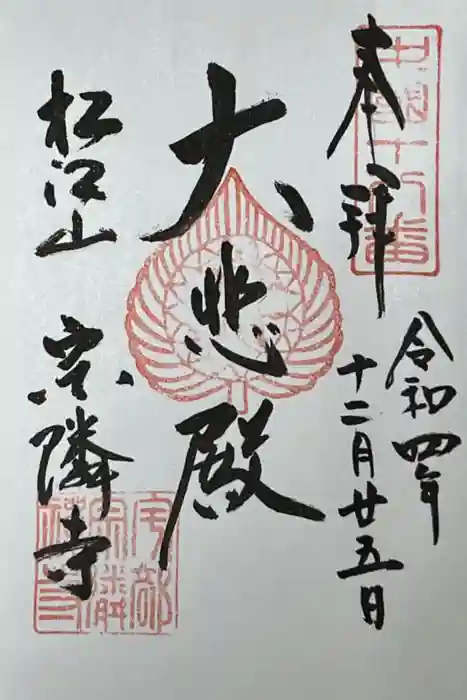 奉拝
中國十八番
令和四年
十二月廿五日
大悲殿
松江山 宗隣寺
宇部
宗隣